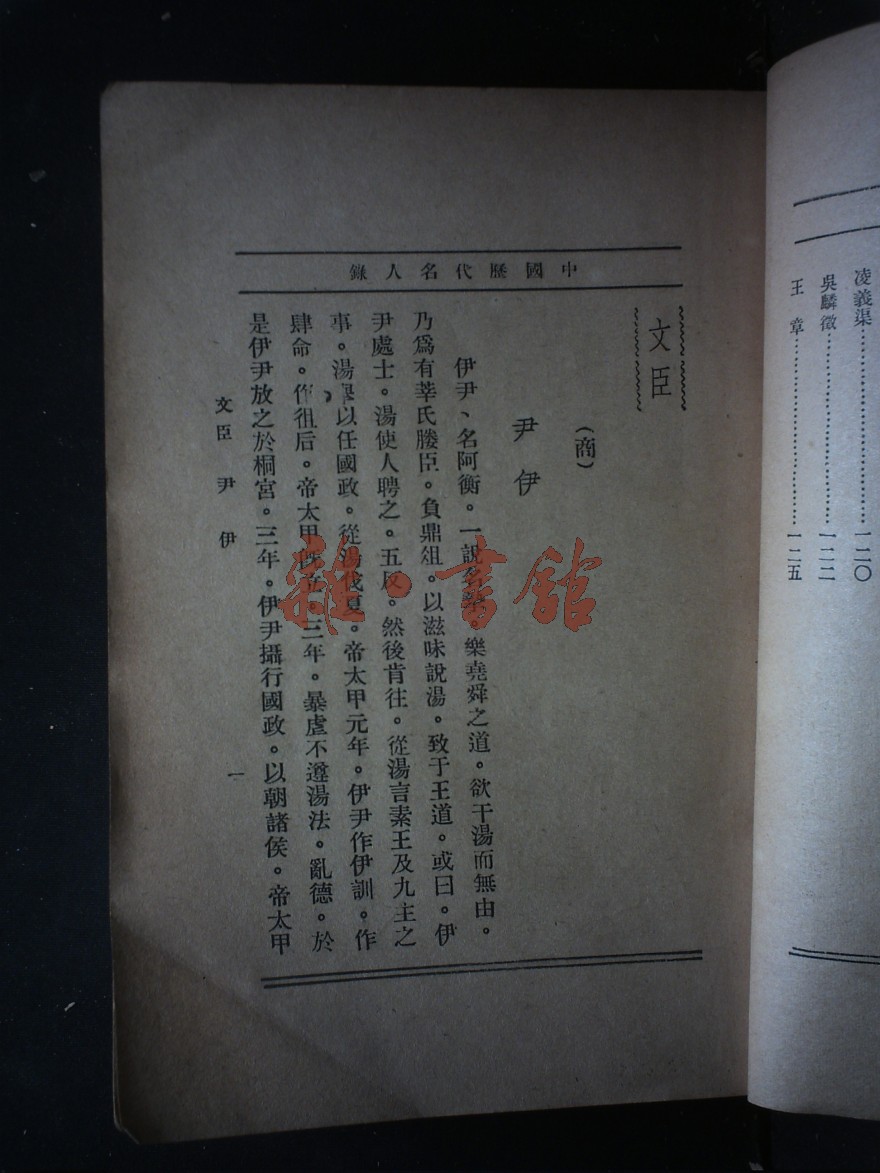 凌義渠……………………一二〇
吳麟徵……………………一二二
王　章……………………一二五
中國歷代名人錄
文臣
（商）
尹伊
伊尹、名阿衡。一說名。樂堯舜之道。欲干湯而無由。
乃爲有莘氏媵臣。負鼎俎。以滋味說湯。致于王道。或曰。伊
尹處士。湯使人聘之。五反。然後肯往。從湯言素王及九主之
事。湯舉以任國政。從湯伐夏。帝太甲元年。伊尹作伊訓。作
肆命。作徂后。帝太甲既立三年。暴虐不遵湯法。亂德。於
是伊尹放之於桐宮。三年。伊尹攝行國政。以朝諸侯。帝太甲
文臣　尹　伊　一
雜·書館